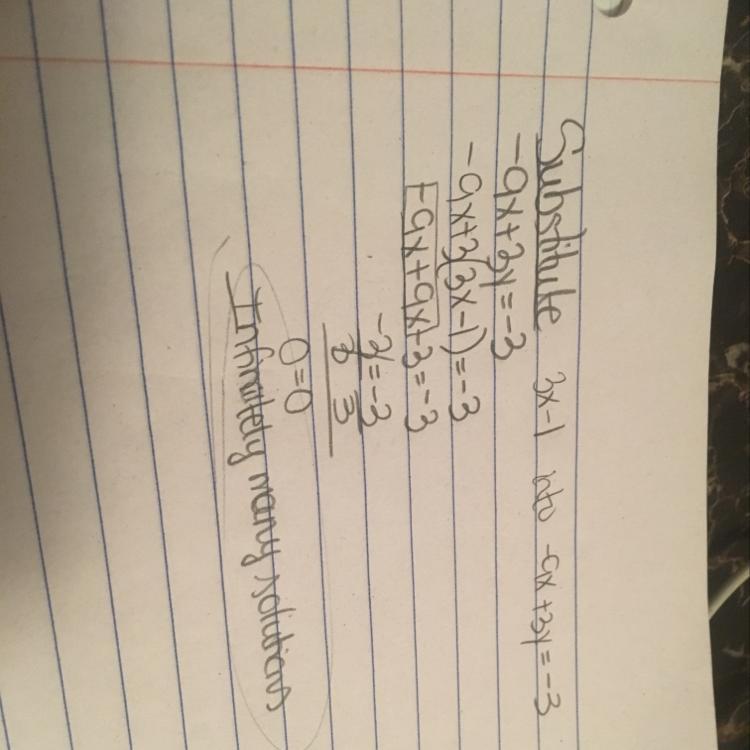 Substitute 3x-1 into -9x+3y=-3
-9x+3y=-3
-9x+3(3x-1)=-3
-9x+9x-3=-3
-3=-3
3 3
0=0
Infinitely many solutions